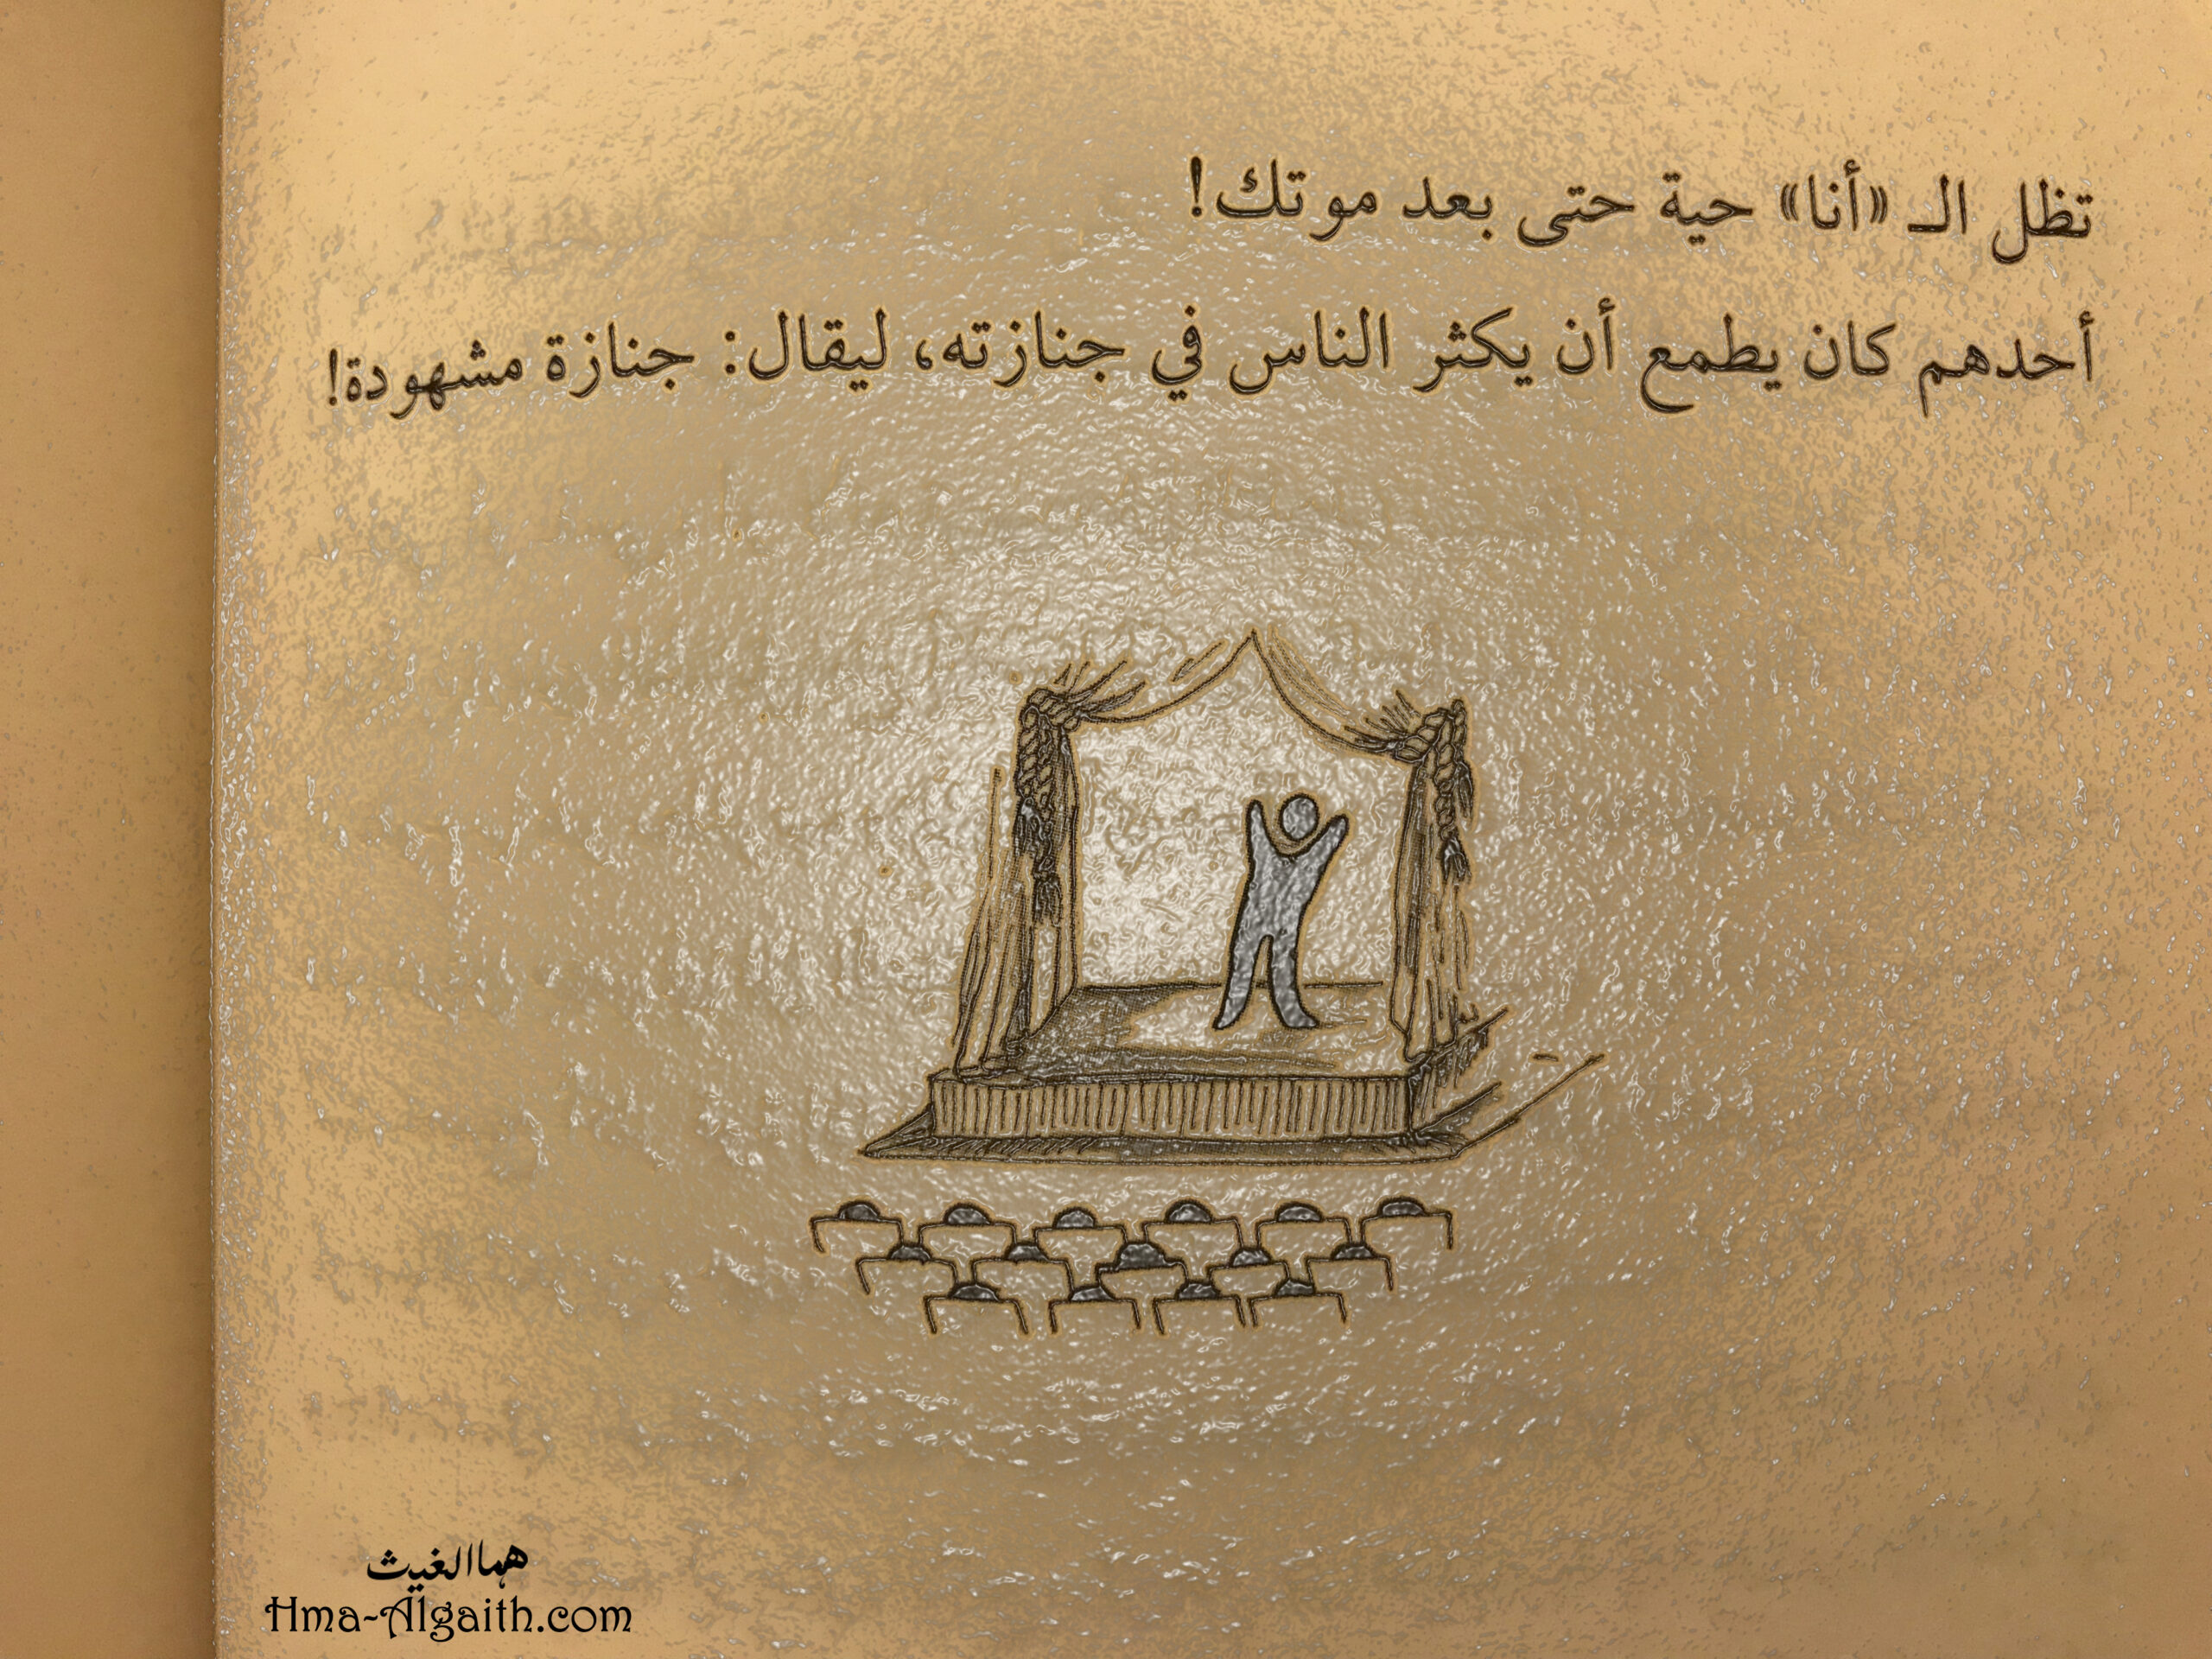 تظل الـ «أنا» حية حتى بعد موتك!
أحدهم كان يطمع أن يكثر الناس في جنازته، ليقال: جنازة مشهودة!
هما الغيث
Hma-Algaith.com